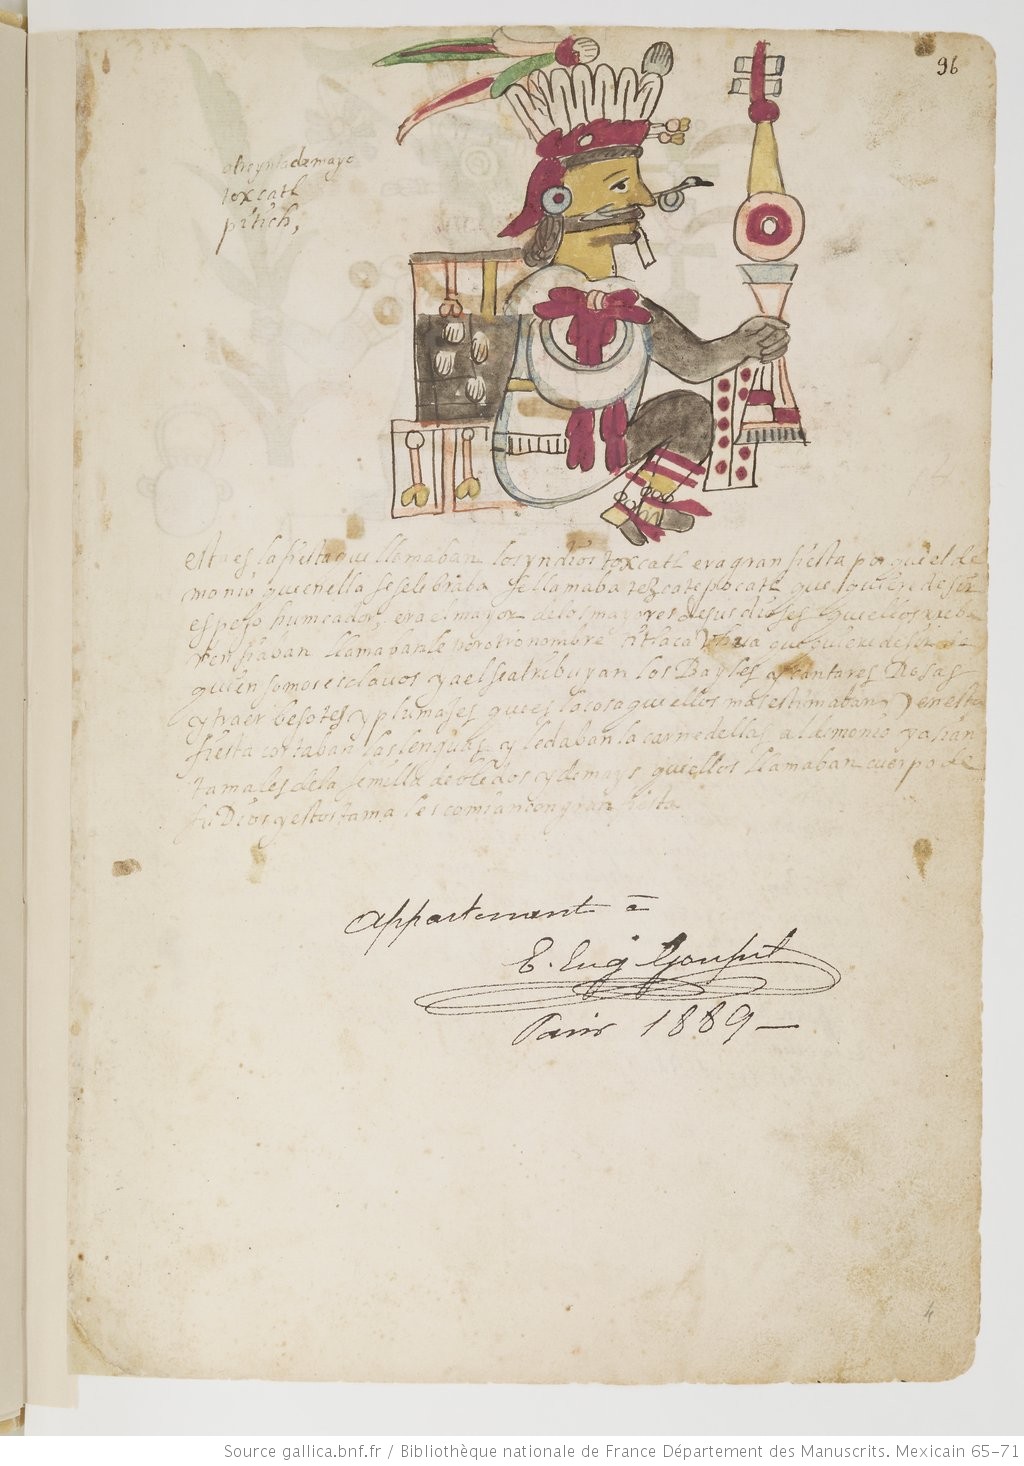 96
a treynta de mayo
toxcatl
pitich,
esta es la fiesta que llamaban los yndios toxcatl era gran fiesta por que el de
monio que en ella se selebraba se llamaba tezcatepocatl que quiere desir
espejo humeador, era el mayor de los mayores de sus dioses que ellos
llamabanle por otro nombre titlacavhua que quiere desir de
quien somos esclavos y a el se atribuyan los Bayles y cantares Rosas
y traer besotes y plumajes que es la cosa que ellos mas estimaban en esta
fiesta cortaban las lenguas y le daban la carne dellas al demonio y asian
tamales de la semilla de bledos y de mays que ellos llamaban cuerpo de
su Dios y estos tamales comian con gran fiesta
appartenant à
E. Eug Goupil
Paris 1889 —
4
Source gallica.bnf.fr / Bibliothèque nationale de France Département des Manuscrits. Mexicain 65-71